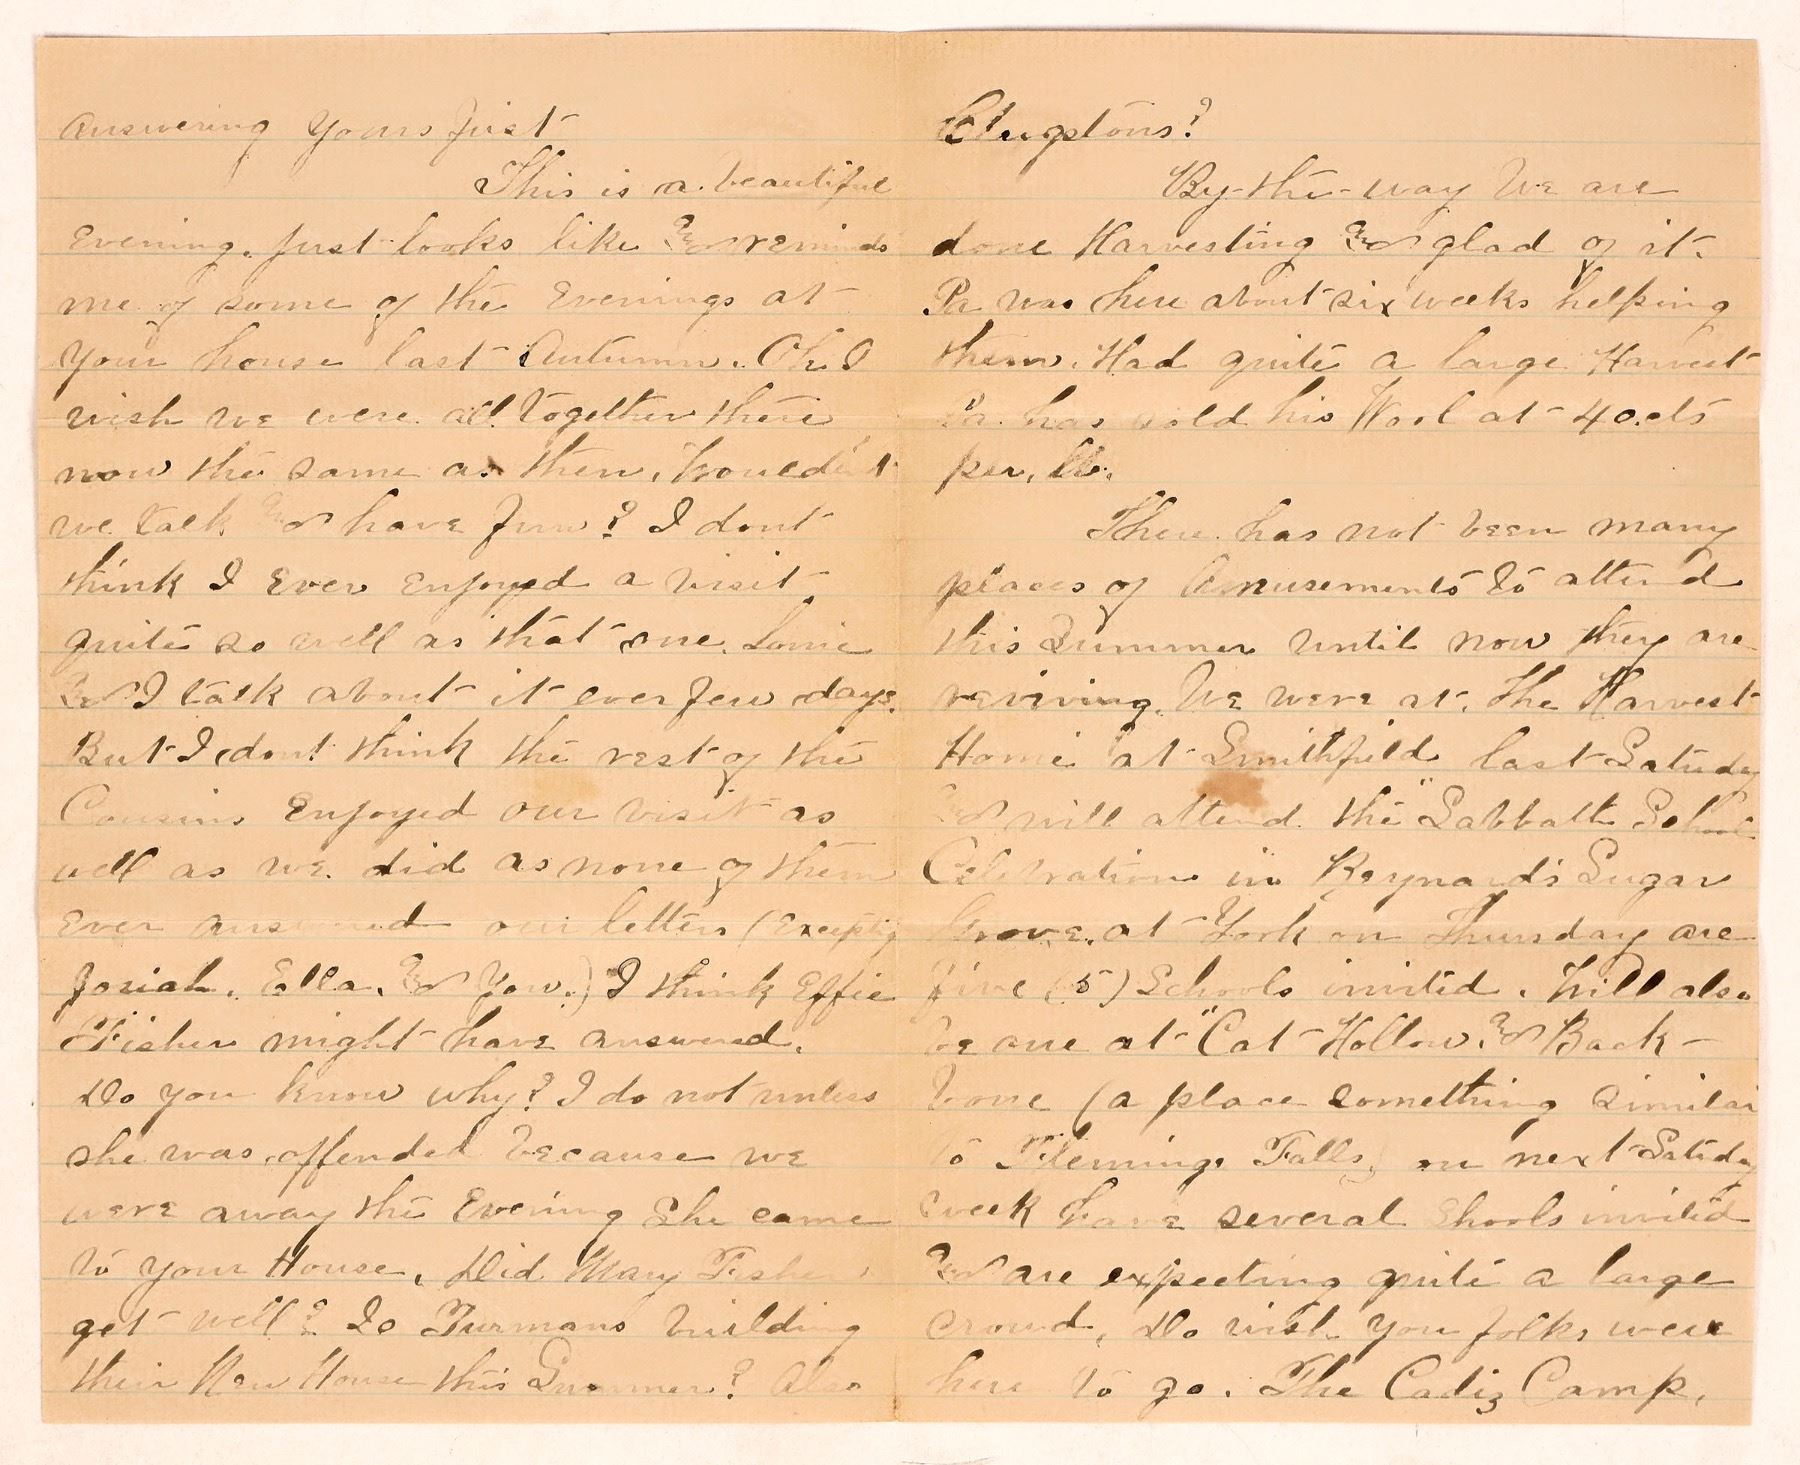 answering Yours first
This is a beautiful
Evening. Just looks like & reminds
me of some of the Evenings at
Your house last Autumn. Oh I
wish we were all together there
now the same as then, Wouldn't
we talk & have fun? I dont
think I Ever Enjoyed a visit
quite so well as that one.
& I talk about it ever few days.
But I dont think the rest of the
Cousins Enjoyed our visit as
well as we did as none of them
Ever answered our letters (Excepting
Josiah. Ella. & You.) I think Effie
Fisher might have answered.
Do you know why? I do not unless
she was offended because we
were away the Evening She came
to your House. Did Mary Fisher
get well? Is Furmans building
their New House this Summer? Also
Clugstons?
By-the-way We are
done Harvesting & glad of it.
Pa was here about six weeks helping
them. Had quite a large Harvest
Pa has sold his Wool at 40.cts
per. lb.
There has not been many
places of Amusements to attend
this Summer until now they are
reviving. We were at. the Harvest
Home at Smithfield last Satuday
& will attend the "Sabbath School
Celebration in Reynard's Sugar
Grove. at York on Thursday are
five (5) Schools invited. Will also
be one at "Cat Hollow. & Back-
bone (a place something similar
to Flemings Falls) on next Satuday
week have several Shools invited
& are expecting quite a large
crowd. Do wish you folks were
here to go. The Cadiz Camp.